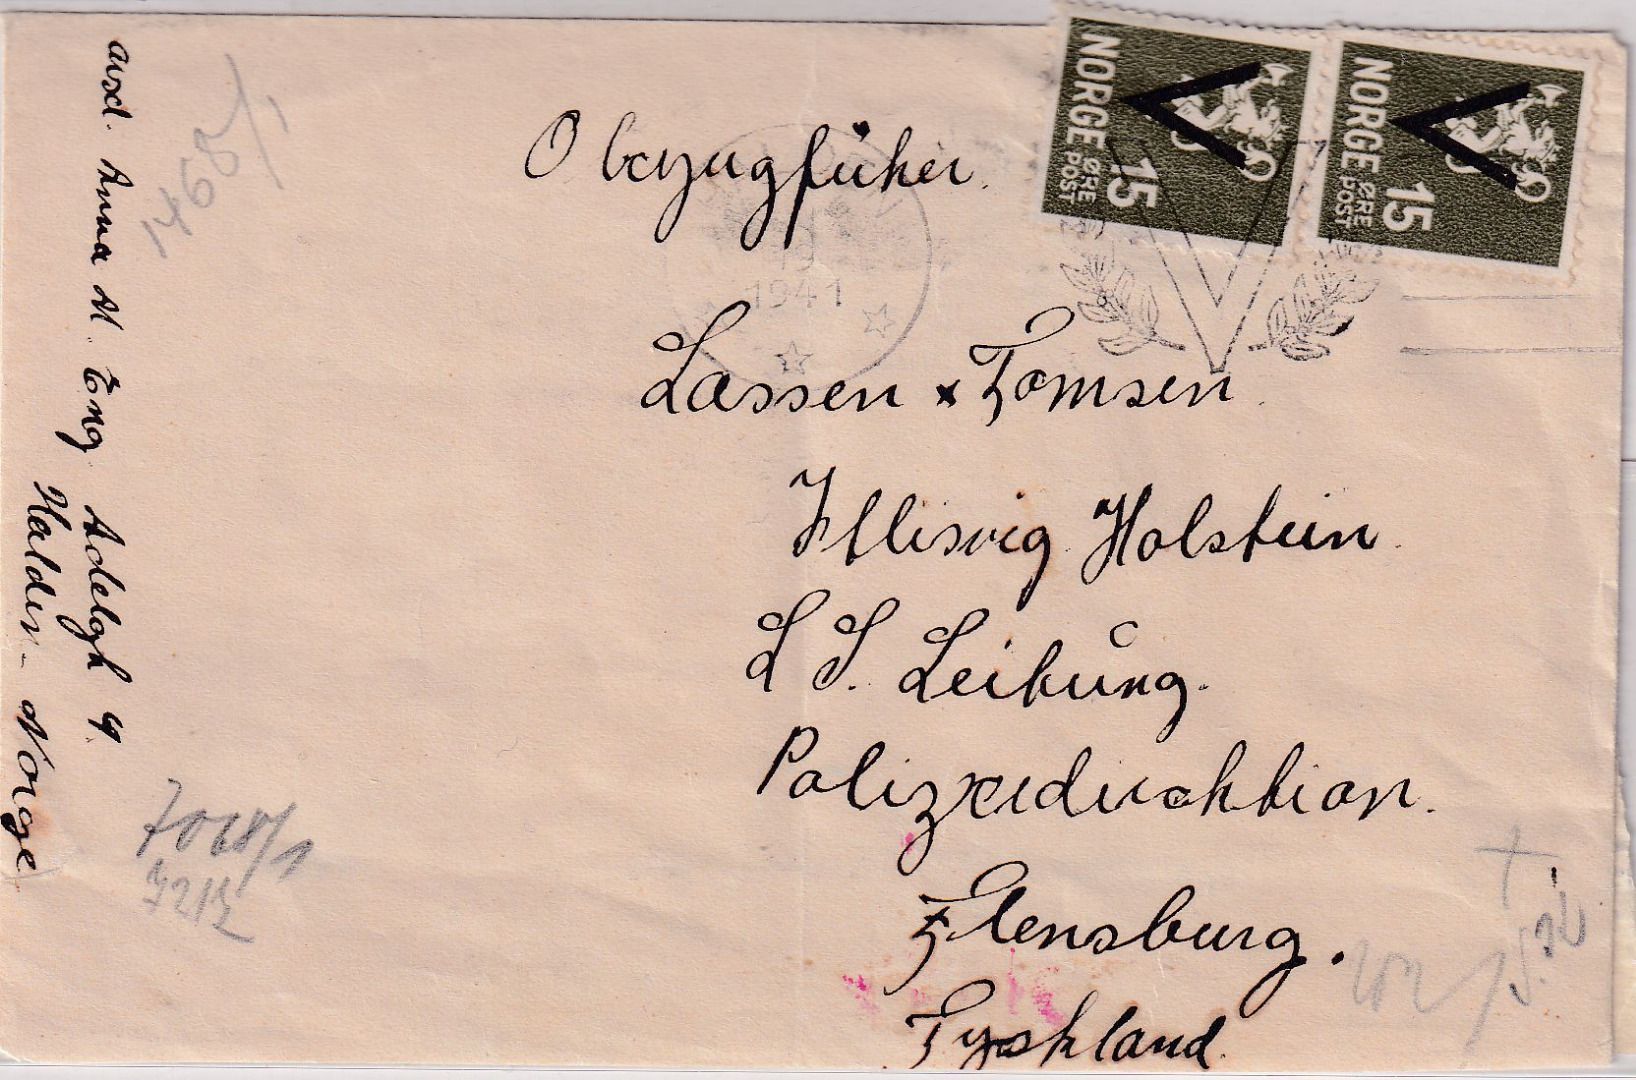 avsd. Anna M. Eng. Adelgh 4.
Halden - Norge
1468/1
Oberzugführer.
Lassen × Tomsen.
Hllisvig Holstein.
L S. Leitung.
Polizeidirektion.
Flensburg.
Tyskland.
NORGE 15 ØRE POST
NORGE 15 ØRE POST
V
19
1941
7068/1